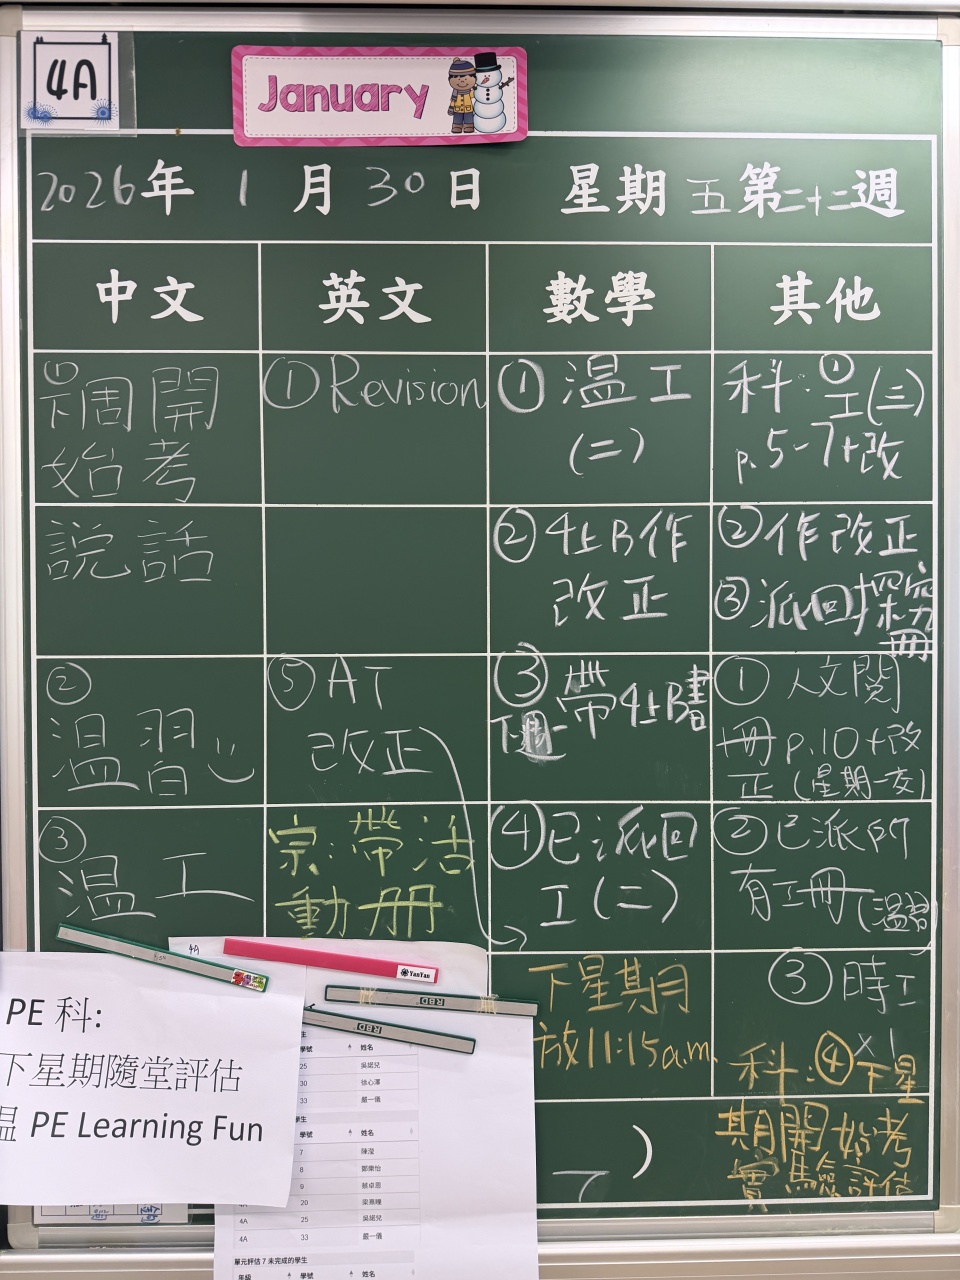 4A
January
2026年1月30日 星期五第二十二週
中文
英文
數學
其他
①下周開
始考
說話
②
溫習
③
溫工
①Revision
⑤AT
改正
宗:帶活
動冊
①溫工
(二)
②4上B作
改正
③
下週一帶4上B書
④已派回
工(二)
下星期月
放11:15a.m.
科:①
工(三)
p.5-7+改
②作改正
③派回探究
冊
①人文閱
冊p.10+改
正(星期一交)
②已派所
有工冊(溫習)
③時工
x1
科:④下星
期開始考
實驗評估
4A
YanYan
RBD
RBD
PE 科:
下星期隨堂評估
溫 PE Learning Fun
生
學號 姓名
25 吳諾兒
30 徐心澤
33 嚴一儀
學生
學號 姓名
7 陳瀅
8 鄭樂怡
9 蔡卓恩
4A 20 梁熹曈
4A 25 吳諾兒
4A 33 嚴一儀
單元評估 7 未完成的學生
年級 學號 姓名